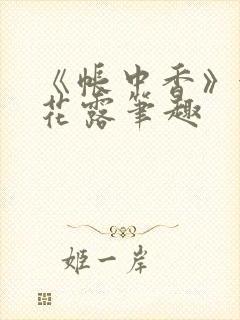 《帐中香》
花露笔趣
姬一岸